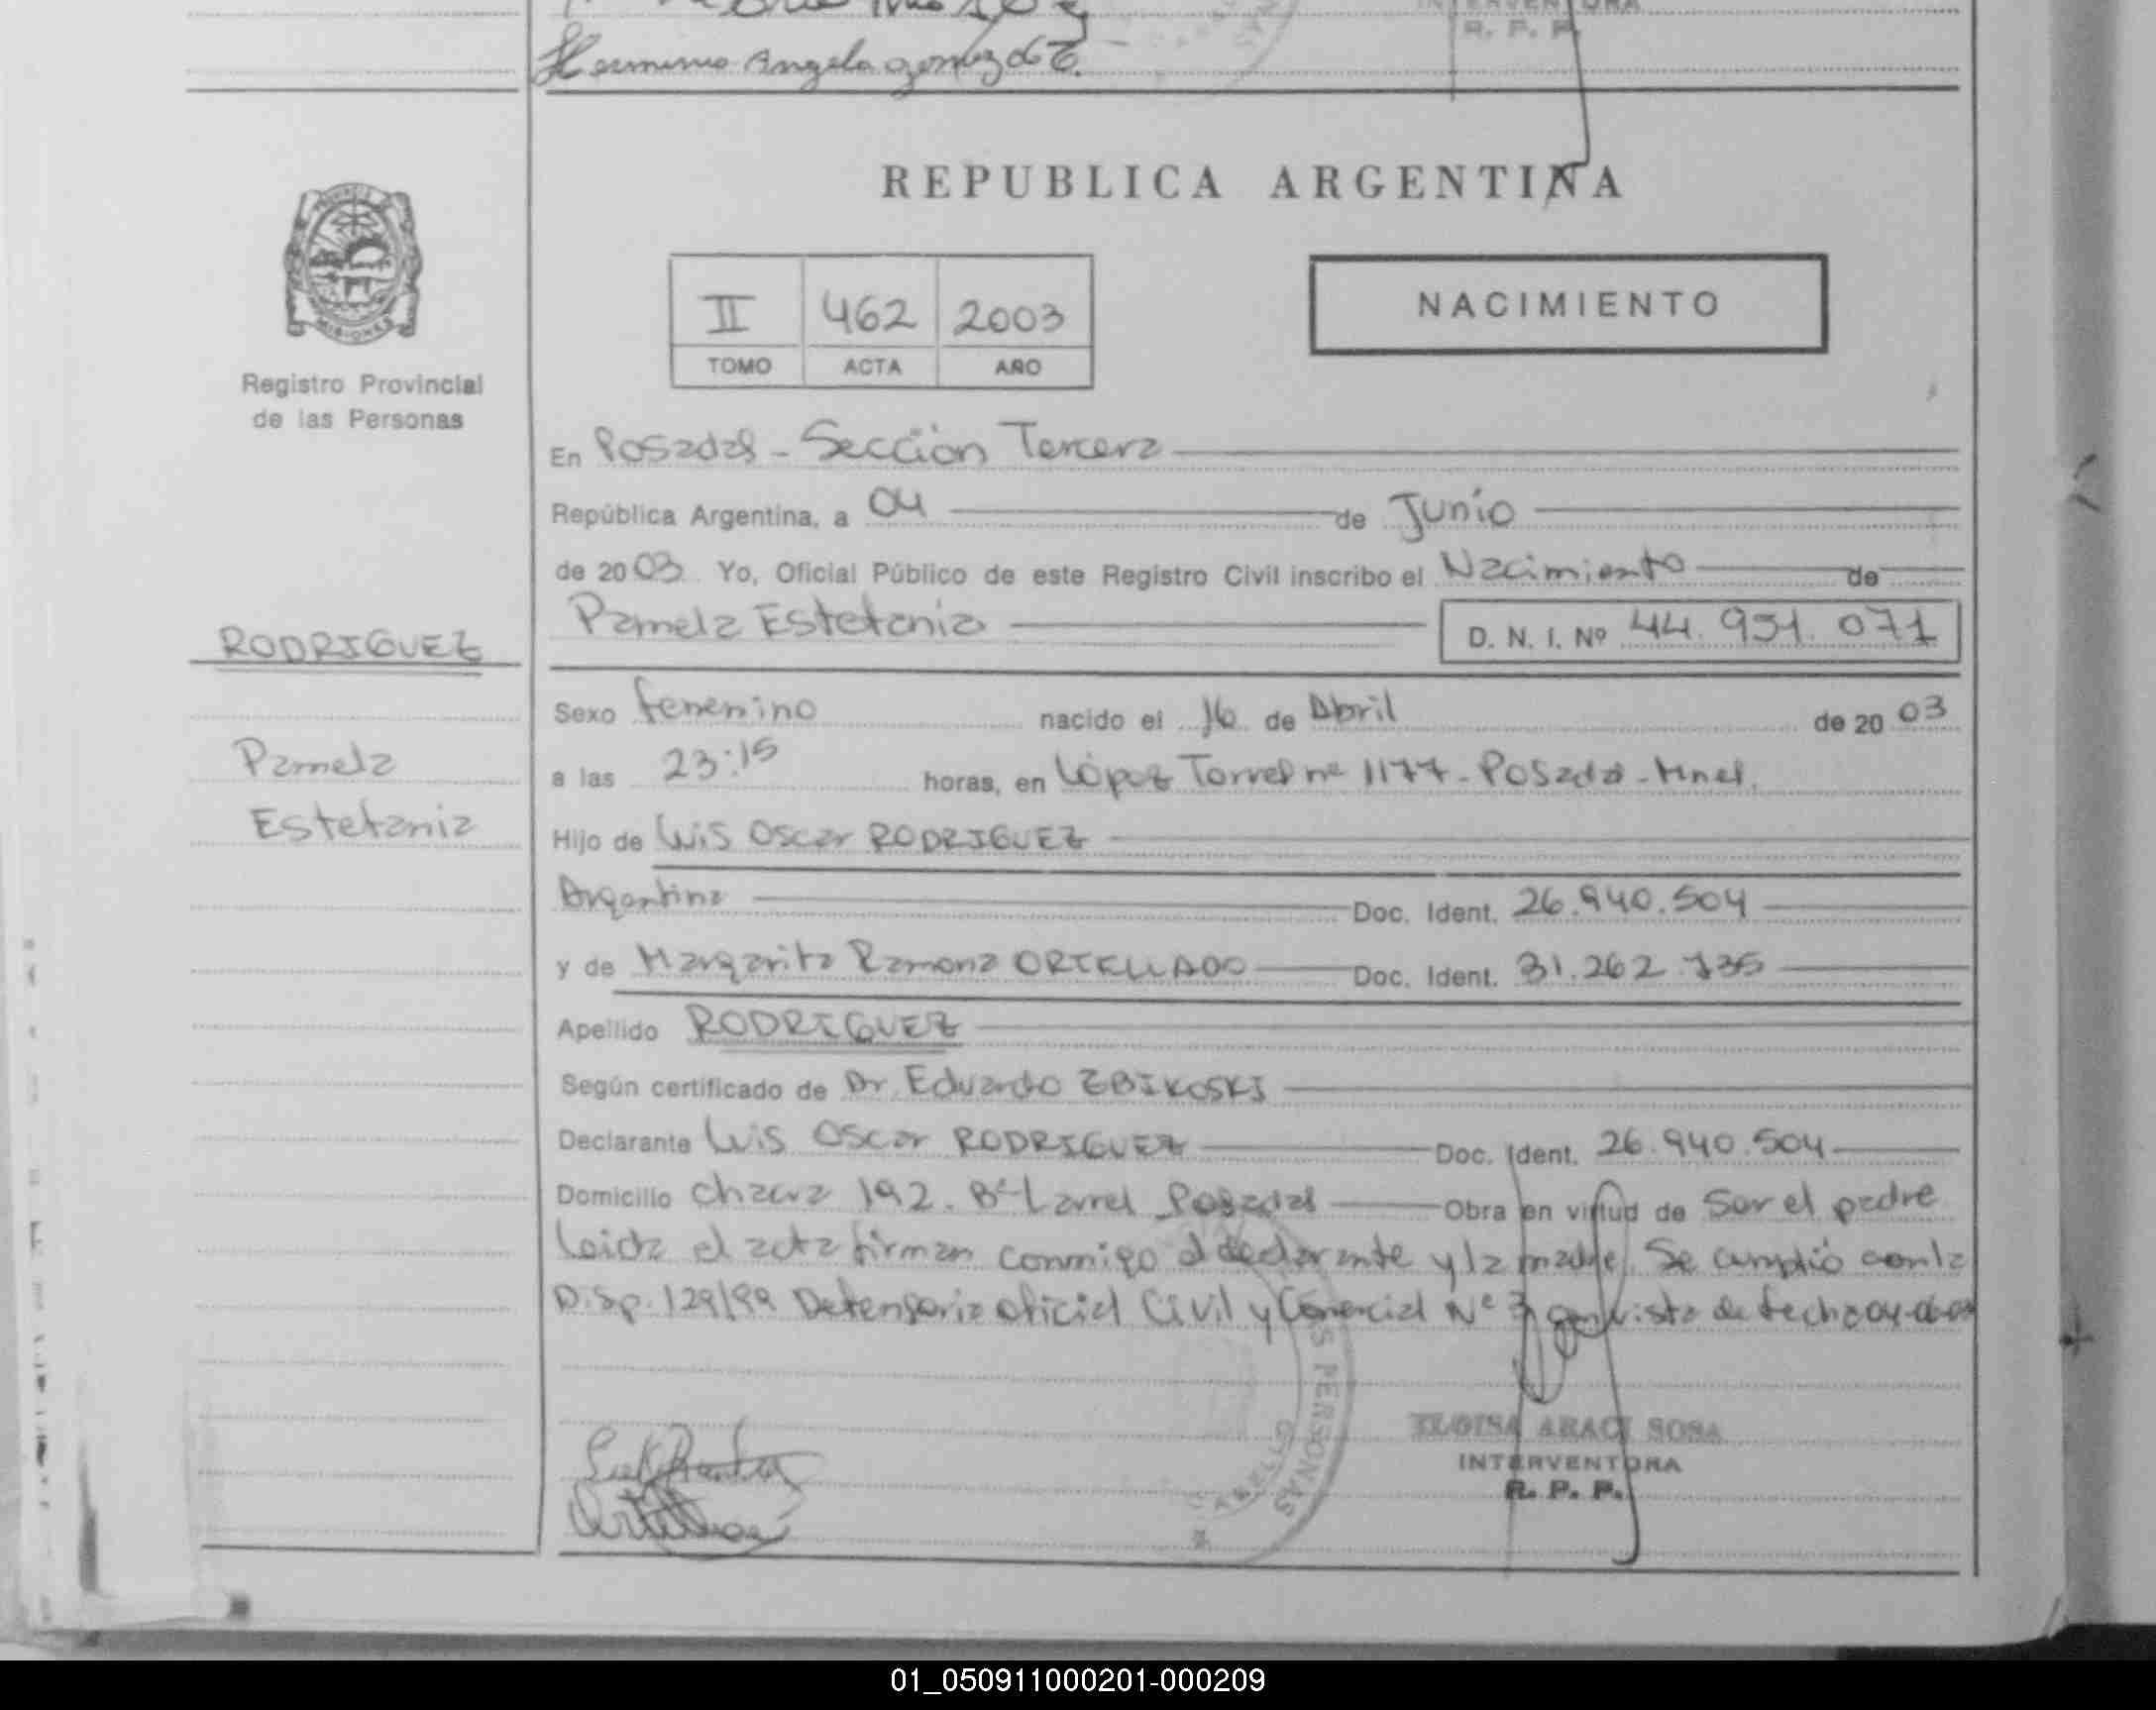 Herminia Angela Gomez de T.
INTERVENTORA
R. P. P.
REPUBLICA ARGENTINA
MISIONES
Registro Provincial
de las Personas
II 462 2003
TOMO ACTA AÑO
NACIMIENTO
En Posadas - Sección Tercera
República Argentina, a 04 de Junio
de 2003 Yo, Oficial Público de este Registro Civil inscribo el Nacimiento de
Pamela Estefania D. N. I. Nº 44.951.071
RODRIGUEZ
Pamela
Estefania
Sexo femenino nacido el 16 de Abril de 20 03
a las 23:15 horas, en López Torres nº 1177 - Posadas - Mnes.
Hijo de Luis Oscar RODRIGUEZ
Argentina Doc. Ident. 26.940.504
y de Margarita Ramona ORTELLADO Doc. Ident. 31.262.735
Apellido RODRIGUEZ
Según certificado de Dr. Eduardo ZBIKOSKI
Declarante Luis Oscar RODRIGUEZ Doc. Ident. 26.940.504
Domicilio Chacra 192. Bº Posadas Obra en virtud de Ser el padre
Leida el acta firman conmigo el declarante y la madre. Se cumplió con la
Disp. 129/99 Defensoria oficial Civil y Comercial Nº 3 vista de fecha 04-06-03
S PERSONAS
ELOISA ARACI SOSA
INTERVENTORA
R. P. P.
01_050911000201-000209